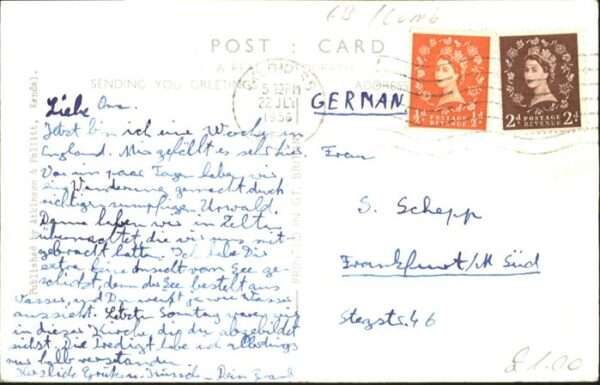 POST : CARD
A REAL PHOTOGRAPH
SENDING YOU GREETINGS
ADDRESS
5 12PM
22 JLY
1956
½d POSTAGE REVENUE ½d
2d POSTAGE REVENUE 2d
Published by Atkinson & Pollitt, Kendal.
Liebe Oma.
Jetzt bin ich eine Woche in
England. Mir gefällt es sehr hier.
Vor ein paar Tagen haben wir
eine Wanderung gemacht durch
richtigen sumpfigen Urwald.
Dann haben wir in Zelten
übernachtet, die wir uns mit-
gebracht hatten. Ich habe Dir
extra keine Ansicht vom See ge-
schickt, denn der See besteht aus
Wasser, und Du weißt ja wie Wasser
aussieht. Letzten Sonntag waren wir
in dieser Kirche, die Du abgebildet
siehst. Die Predigt habe ich allerdings
nur halb verstanden.
Herzliche Grüße Dein
GERMANY
Frau
S. Schepp
Frankfurt/M Süd
46
£1.00